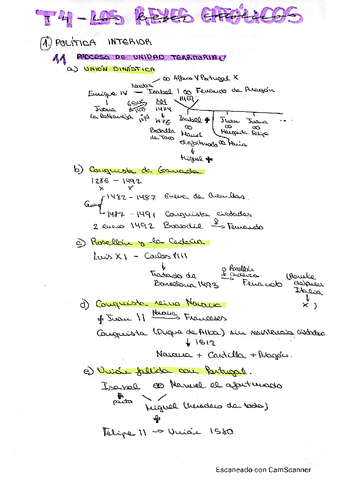 T4 - LOS REYES CATÓLICOS
1. POLÍTICA INTERIOR
1.1 PROCESO DE UNIDAD TERRITORIAL
a) UNIÓN DINÁSTICA
∞ Alfonso V Portugal X
Enrique IV — Isabel I ∞ Fernando de Aragón
Juana la Beltraneja
1474
1479
Batalla de Toro
Isabel + Juan Juana
∞ ∞ ∞
Manuel Margarita Felipe
el afortunado ∞ María
Miguel +
b) Conquista de Granada
1286 - 1492
1482 - 1487 Guerra de
1487 - 1491 Conquista ciudades
2 enero 1492 Boabdil → Fernando
c) Rosellón y la Cerdaña
Luis XI - Carlos VIII
Tratado de Barcelona 1493 → Rosellón Cerdaña Fernando
Italia
X )
d) Conquista reino Navarra
Juan II Navarra → Franceses
Conquista (Duque de Alba) sin resistencia ciudades
↓ 1512
Navarra + Castilla + Aragón.
e) Unión fallida con Portugal.
Isabel ∞ Manuel el afortunado
parto Miguel (heredero de todo)
Felipe II → Unión 1580
Escaneado con CamScanner